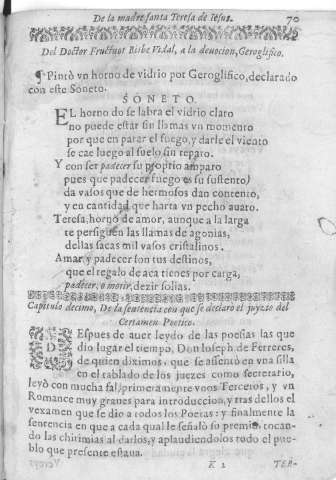 De la madre santa Teresa de Iesus. 70
Del Doctor Fructuos Bisbe Vidal, a la deuocion, Geroglifico.
¶ Pintò vn horno de vidrio por Geroglifico, declarado
con este Soneto.
SONETO.
EL horno do se labra el vidrio claro
no puede estar sin llamas vn momento
por que en parar el fuego, y darle el viento
se cae luego al suelo sin reparo.
Y con ser padecer su proprio amparo
pues que padecer fuego es su sustento,
da vasos que de hermosos dan contento,
y en cantidad que harta vn pecho auaro.
Teresa, horno de amor, aunque a la larga
te persiguen las llamas de agonias,
dellas sacas mil vasos cristalinos.
Amar y padecer son tus destinos,
que el regalo de aca tienes por carga,
padecer o morir, dezir solias.
Capitulo decimo, De la sentencia con que se declarò el juyzio del
Certamen Poetico.
DEspues de auer leydo de las poesias las que
dio lugar el tiempo, Don Ioseph de Ferreres,
de quien diximos, que se assentò en vna silla
en el tablado de los juezes como secretario,
leyò con mucha sal, primeramente vnos Tercetos, y vn
Romance muy graues para introduccion, y tras dellos el
vexamen que se dio a todos los Poetas: y finalmente la
sentencia en que a cada qual le señalò su premio, tocan-
do las chirimias al darlos, y aplaudiendolos todo el pue-
blo que presente estaua.
K 2 TER-